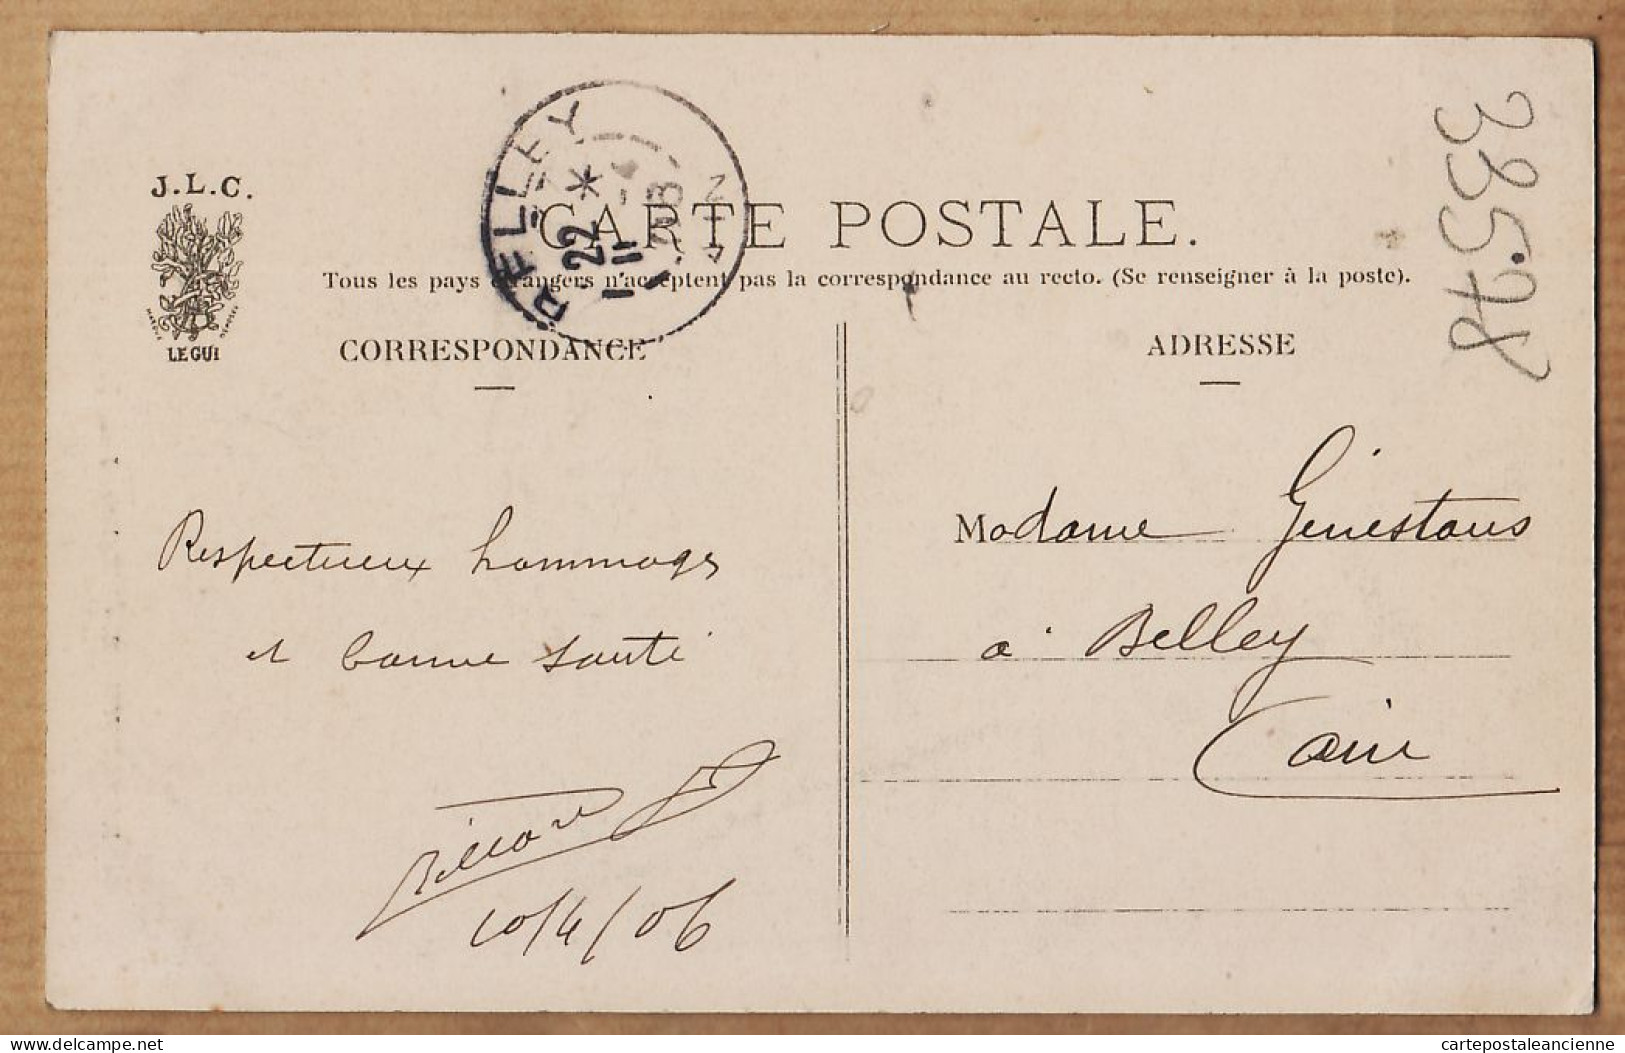 J.L.C.
MARQUE DÉPOSÉE
LE GUI
BELLEY
AIN
22
*
CARTE POSTALE.
Tous les pays étrangers n'acceptent pas la correspondance au recto. (Se renseigner à la poste).
CORRESPONDANCE
ADRESSE
33578
Respectueux hommages
et bonne santé
10/4/06
Madame Genestous
à Belley
Ain
delcampe.net
cartepostaleancienne